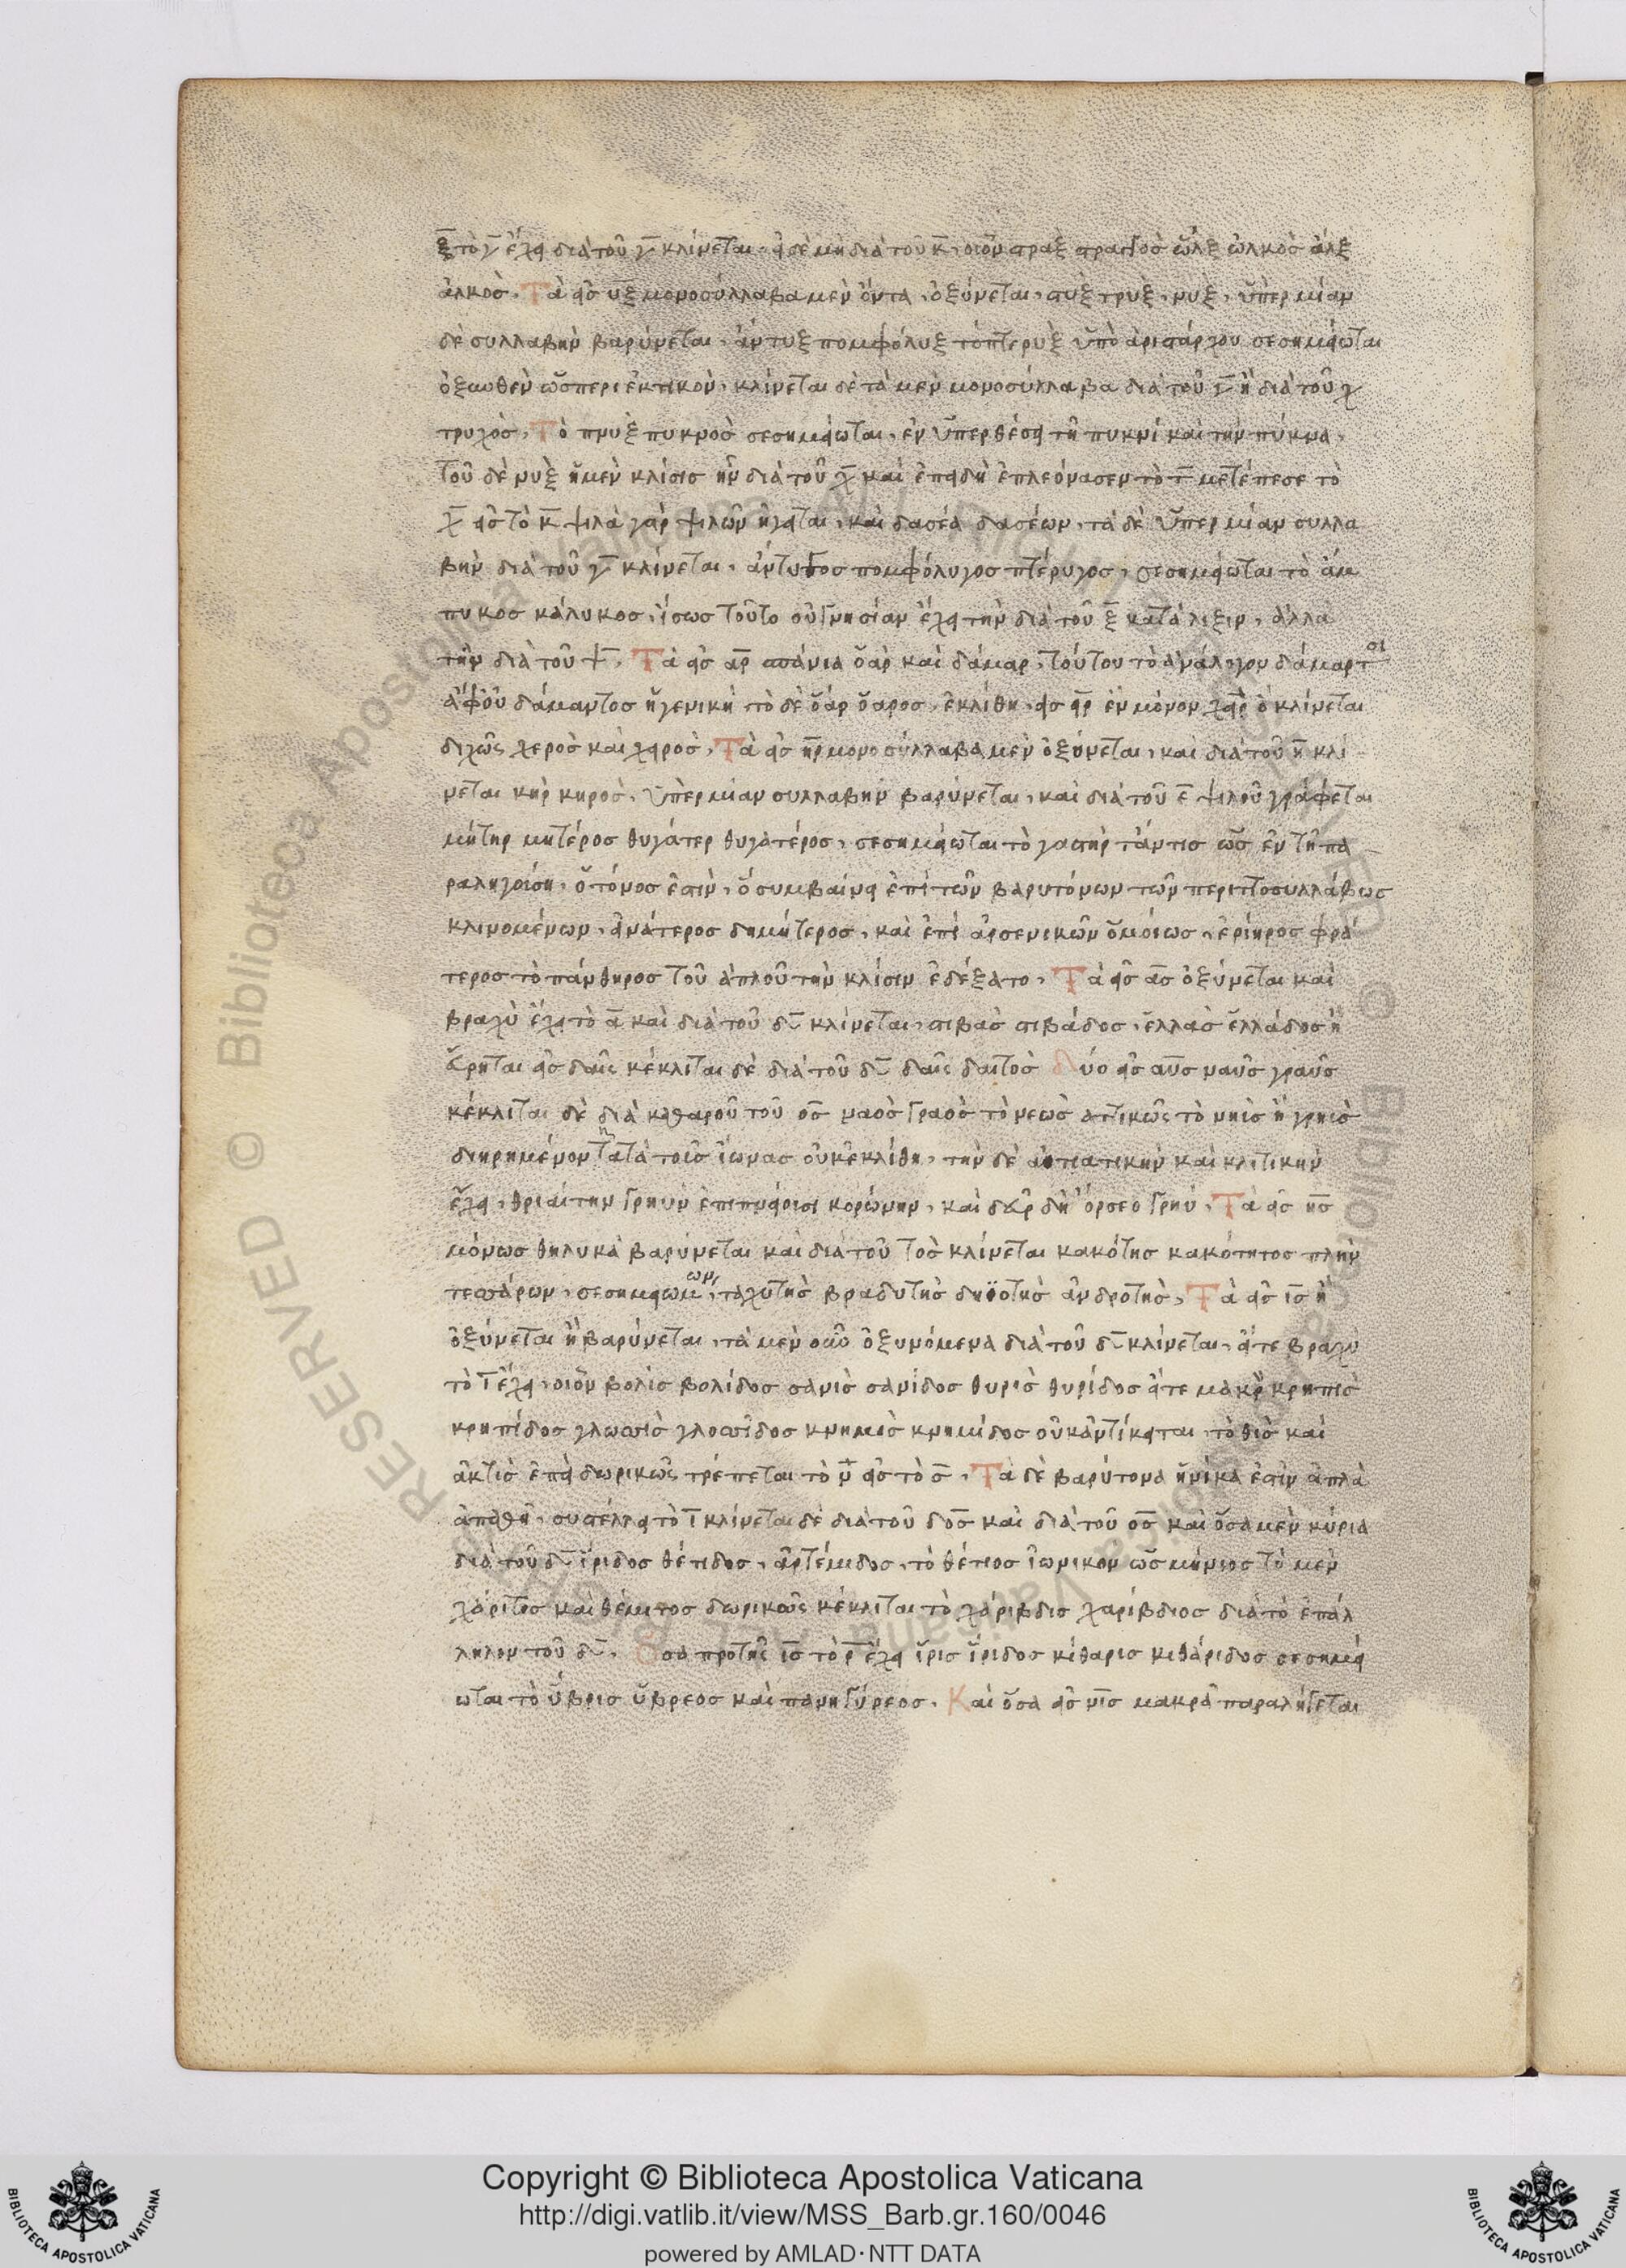 ξ̅ τὸ γ̅ ἔχει διὰ τοῦ γ̅ κλίνεται, εἰ δὲ μὴ διὰ τοῦ κ̅, οἷον στραξ στραγγὸς ὦλξ ὠλκὸς ἀλξ
ἀλκὸς. Τὰ εἰς υξ μονοσύλλαβα μὲν ὄντα, ὀξύνεται, στυξ τρυξ, νυξ, ὑπὲρ μίαν
δὲ συλλαβὴν βαρύνεται, ἄντυξ πομφόλυξ τὸ πτερυξ ὑπὸ ἀριστάρχου σεσημείωται
ὀξυνθεν ὥσπερ ἑκτικὸν, κλίνεται δὲ τὰ μὲν μονοσύλλαβα διὰ τοῦ γ̅ ἢ διὰ τοῦ χ
τρυχος, Τὸ πνυξ πυκνὸς σεσημείωται, ἐν ὑπερθέσει τῆ πυκνὶ καὶ τὴν πύκνα,
τοῦ δὲ νυξ ἡ μὲν κλίσις ἦν διὰ τοῦ χ̅ καὶ ἐπειδὴ ἐπλεόνασεν τὸ τ̅ μετέπεσε τὸ
χ̅ εἰς τὸ κ̅ ψιλὰ γὰρ ψιλῶν ἡγεῖται, καὶ δασέα δασέων, τὰ δὲ ὑπὲρ μίαν συλλα
βὴν διὰ τοῦ γ̅ κλίνεται, ἄντυγος πομφόλυγος πτέρυγος, σεσημείωται τὸ ἄμ
πυκος κάλυκος, ἴσως τοῦτο οὐ γνησίαν ἔχει τὴν διὰ τοῦ ξ̅ κατάληξιν, ἀλλὰ
τὴν διὰ τοῦ ψ̅. Τὰ εἰς αρ̅ σπάνια ὄαρ καὶ δάμαρ, τούτου τὸ ἀνάλογον δάμαρτοι
ἀφ' οὗ δάμαντος ἡ γενικὴ τὸ δὲ ὄαρ ὄαρος, ἐκλίθη, εἰς ειρ̅ ἓν μόνον χεὶρ ὃ κλίνεται
διχῶς χερὸς καὶ χειρὸς, Τὰ εἰς ηρ̅ μονοσύλλαβα μὲν ὀξύνεται, καὶ διὰ τοῦ η̅ κλί
νεται κὴρ κηρὸς, ὑπὲρ μίαν συλλαβὴν βαρύνεται, καὶ διὰ τοῦ ε̅ ψιλοῦ γράφεται
μήτηρ μητέρος θυγάτερ θυγατέρος, σεσημείωται τὸ γαστὴρ
ραληγούση, ὁ τόνος ἐστὶν, ὃ συμβαίνει ἐπὶ τῶν βαρυτόνων τῶν περιττοσυλλάβως
κλινομένων, εἰνάτερος δημήτερος, καὶ ἐπὶ ἀρσενικῶν ὁμοίως, ἐρίηρος φρά
τερος τὸ πάνθηρος τοῦ ἁπλοῦ τὴν κλίσιν ἐδέξατο, Τὰ εἰς ας̅ ὀξύνεται καὶ
βραχὺ ἔχει τὸ α̅ καὶ διὰ τοῦ δ̅ κλίνεται, στιβὰς στιβάδος, ἑλλὰς ἑλλάδος ἢ
εὕρηται εἰς δαὶς κέκλιται δὲ διὰ τοῦ δ̅ δαὶς δαιτὸς Δύο εἰς αυς̅ ναῦς γραῦς
κέκλιται δὲ διὰ καθαροῦ τοῦ ος̅ ναὸς γραὸς τὸ νεὼς ἀττικῶς τὸ νηὶς ἢ γρηὶς
διηρημένον τοῖς ἴωνας οὐκ ἐκλίθη, τὴν δὲ αἰτιατικὴν καὶ κλιτικὴν
ἔχει, θριαὶ τὴν γρηὺν ἐπιπνείουσι κορώνην, καὶ δεῦρ δὴ ὄρσεο γρηύ, Τὰ εἰς ης̅
μόνως θηλυκὰ βαρύνεται καὶ διὰ τοῦ τος κλίνεται κακότης κακότητος πλὴν
τεσσάρων, σεσημειωμένων, ταχυτὴς βραδυτὴς δηϊοτὴς ἀνδροτὴς, Τὰ εἰς ις̅ ἢ
ὀξύνεται ἢ βαρύνεται, τὰ μὲν οὖν ὀξυνόμενα διὰ τοῦ δ̅ κλίνεται, εἴτε βραχὺ
τὸ ι̅ ἔχει, οἷον βολὶς βολίδος σανὶς σανίδος θυρὶς θυρίδος εἴτε μακρὸν κρηπὶς
κρηπίδος γλωσσὶς γλοσσίδος κνημὶς κνημίδος οὐκ ἀντίκειται, τὸ θὶς καὶ
ἀκτὶς ἐπεὶ δωρικῶς τρέπεται τὸ ν̅ εἰς τὸ ς̅. Τὰ δὲ βαρύτονα ἡνίκα ἐστὶν ἁπλᾶ
ἀπαθῆ, συστέλλει τὸ ι̅ κλίνεται δὲ διὰ τοῦ δος̅ καὶ διὰ τοῦ ος̅ καὶ ὅσα μὲν κύρια
διὰ τοῦ δ̅ ἴριδος θέτιδος, ἀρτέμιδος, τὸ θέτιος ἰωνικὸν ὡς μήνιος τὸ μὲν
χάριτος καὶ θέμιτος δωρικῶς κέκλιται τὸ χάριβδις χαρίβδιος διὰ τὸ ἐπάλ
ληλον τοῦ δ̅. Ὅσα πρὸ τῆς ις̅ τὸ ρ̅ ἔχει ἶρις ἴριδος κίθαρις κιθάριδος σεσημεί
ωται τὸ ὕβρις ὕβρεος καὶ πανηγύρεος. Καὶ ὅσα εἰς νις̅ μακρᾶ παραλήγεται
Copyright © Biblioteca Apostolica Vaticana
http://digi.vatlib.it/view/MSS_Barb.gr.160/0046
powered by AMLAD·NTT DATA